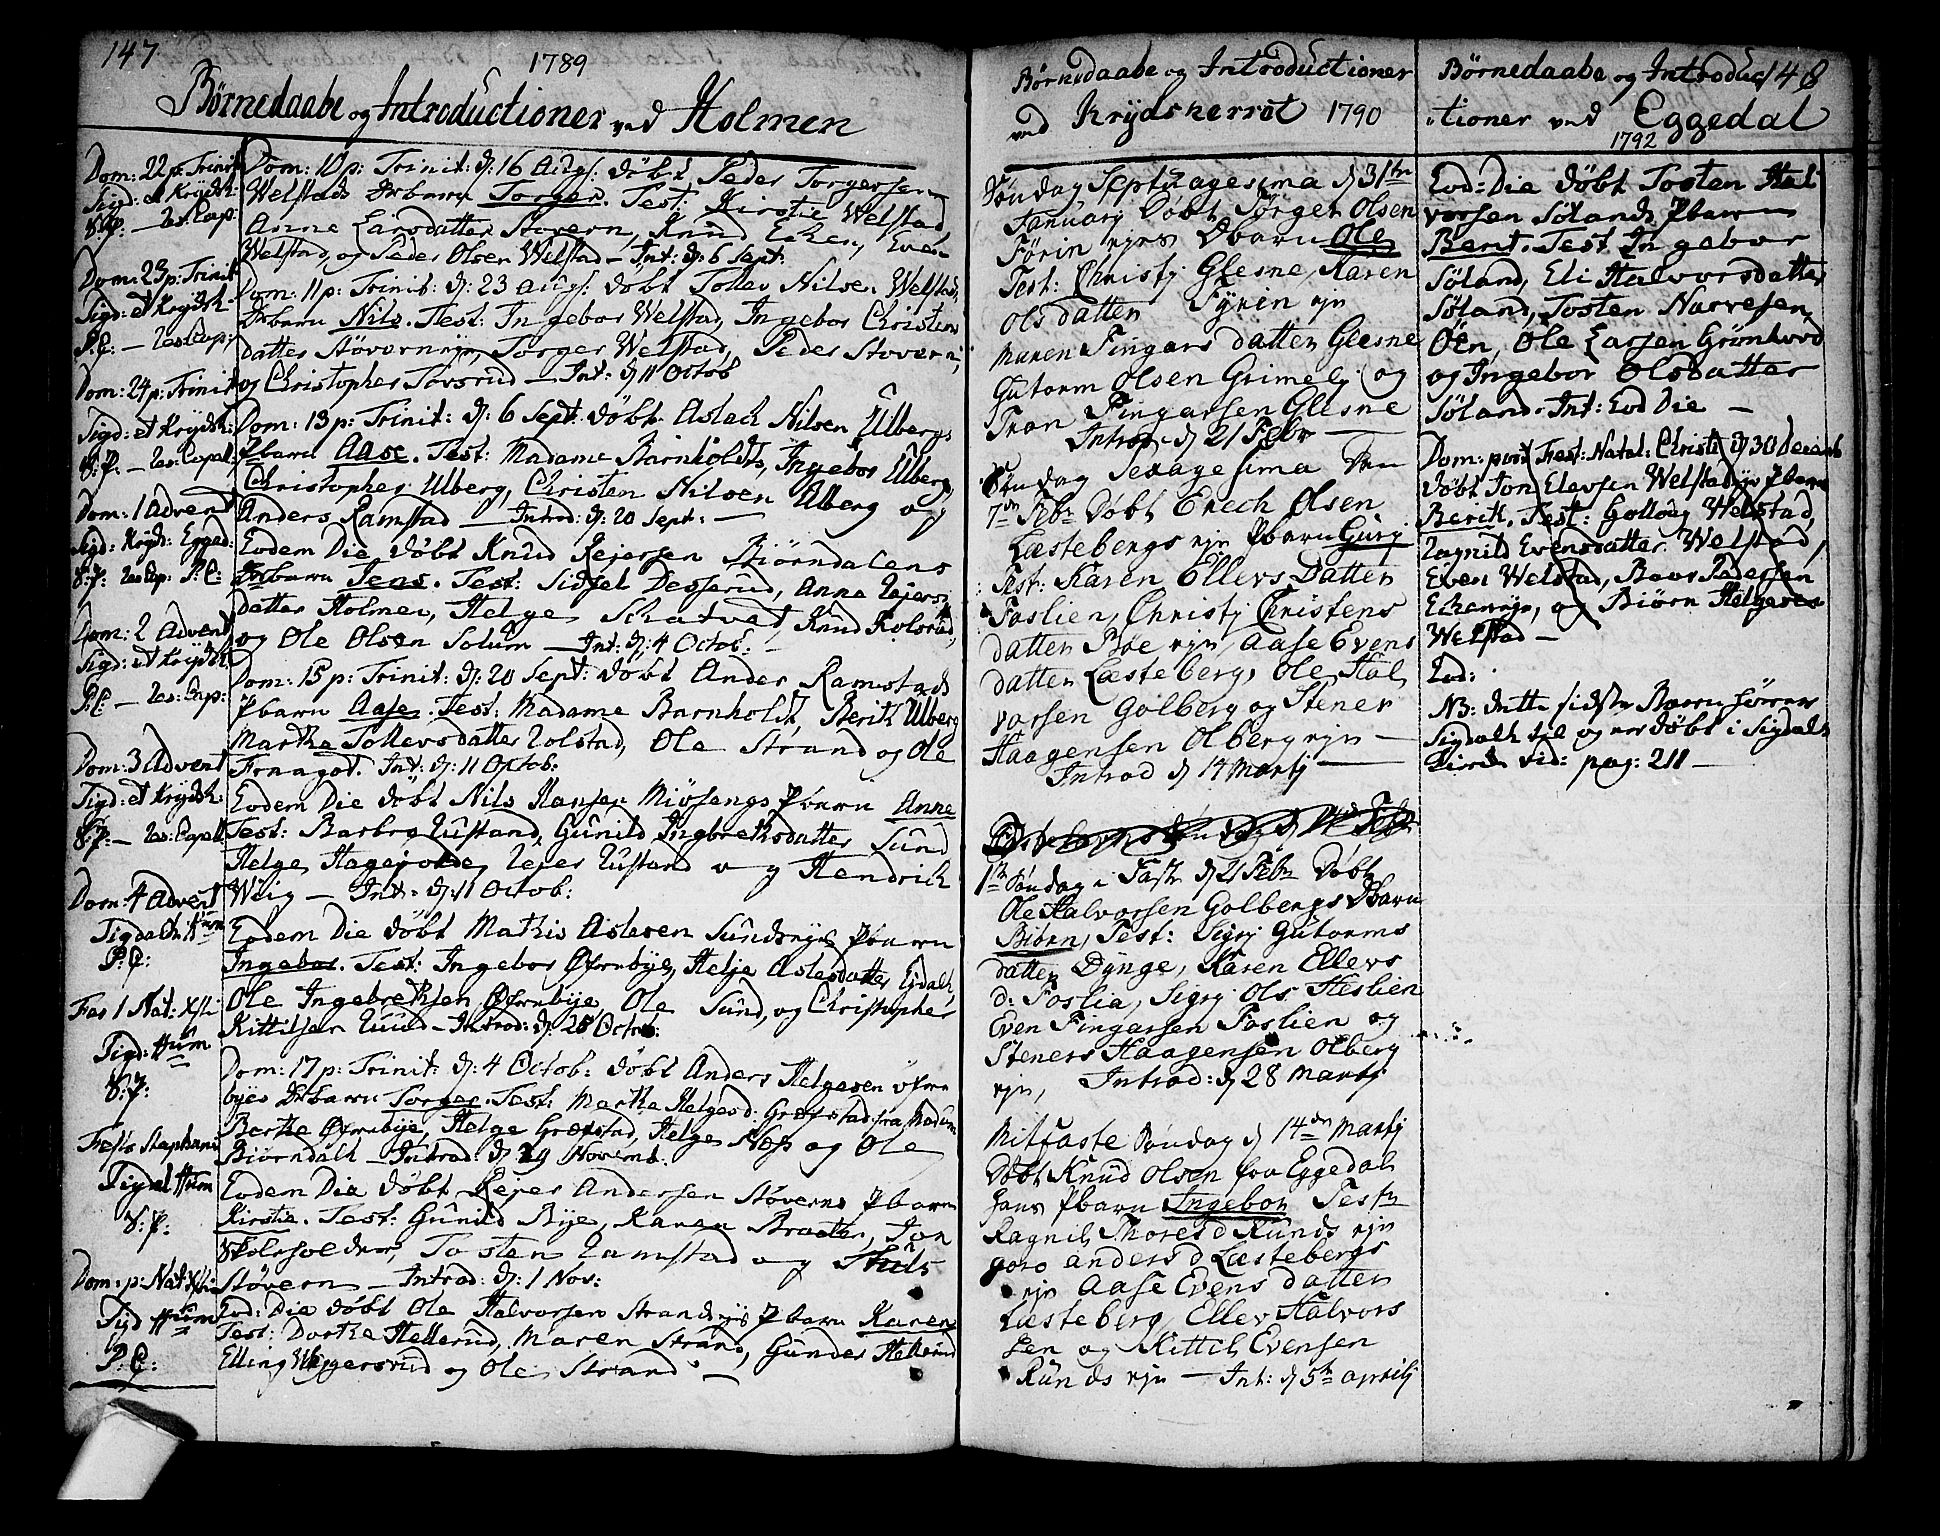 147
1789
Børnedaabe og Introductioner ved Holmen
Dom: 22 p: Trinit
Sigd: et Krydsh:
Dom: 23 p: Trinit
Sigd: et Krydsh
P:C: — Res: Cap:
Dom: 24 p: Trinit
Sigd: et Krydsh:
S:P: — Res: Capell:
Dom: 1 Advent
Sigd: Krydsh: Egged:
S:P: Res: Cap: P:C:
Dom: 2 Advent
Sigd: et Krydsh:
P:C: — Res: Cap:
Dom: 3 Advent
Sigd: et Krydsh:
S:P: — Res: Capell:
Dom: 4 Advent
Sigdal et Hum
P:C:
Fer 1 Nat: Xsti
Sigd: Hum
S:P:
Festo Stephani
Sigdal Hum
S:P:
Dom: p: Nat Xsti
Sigd Hum
P:C:
Dom: 10 p: Trinit: d: 16 Aug: døbt Peder Torgersen
Welstads Drbarn Torger. Test: Kirstie Welstad,
Anne Larsdatter Støvern, Knud Ecker, Even
Welstad, og Peder Olsen Welstad — Int: d: 6 Sept:
Dom: 11 p: Trinit: d: 23 Aug: døbt Tollev Nilsen Welstads
Drbarn Nils. Test: Ingebor Welstad, Ingebor Christens
datter Støvernejn, Torger Welstad, Peder Støvern,
og Christopher Tovsrud — Int: d: 11 Octob
Dom: 13 p: Trinit: d: 6 Sept: døbt Aslach Nilsen Ulbergs
Pbarn Aase. Test: Madame Barnholdt, Ingebor Ulberg,
Christopher Ulberg, Christen Nilsen Ulberg og
Anders Ramstad — Introd: d: 20 Sept: —
Eodem Die døbt Knud Rejersen Biørndalens
Drbarn Jens. Test: Sidsel Desserud, Anne Rejers
datter Holmen, Helge Schatvet, Knud Kolsrud,
og Ole Olsen Solum — Int: d: 4 Octob: —
Dom: 15 p: Trinit: d: 20 Sept: døbt Ander Ramstads
Pbarn Aase. Test: Madame Barnholdt, Berith Ulberg
Martha Tollevsdatter Rolstad, Ole Strand og Ole
Frnagot. Int: d: 11 Octob:
Eodem Die døbt Nils Hansen Miøsengs Pbarn Anne
Test: Barbro Rustand, Gunild Ingebrethsdatter Sund
Helge Hagejorde, Rejer Rustand og Hendrich
Weig — Int: d: 11 Octob:
Eodem Die døbt Mathis Aslesen Sundsejes Pbarn
Ingebor. Test: Ingebor Øfrnbye, Helje Aslesdatter Ejdal,
Ole Ingebrethsen Øfrnbye, Ole Sund, og Christopher
Kittilsen Ruud — Introd: d: 25 Octob:
Dom: 17 p: Trinit: d: 4 Octob: døbt Anders Helgesen Øfrn
byes Drbarn Torger. Test: Martha Helgesd: Grøfstad fra Modum
Berthe Øfrnbye, Helge Grøfstad, Helge Næss og Ole
Biørndalh — Introd: d: 29 Novemb:
Eodem Die døbt Rejer Andersen Støverns Pbarn
Kirstie. Test: Gunild Bye, Karen Braaten, Jon
Skoleholder, Tosten Ramstad og Niels
Støvern — Introd: d: 1 Nov:
Eod: Die døbt Ole Halvorsen Strandejes Pbarn Karen
Test: Dorthe Hellerud, Maren Strand, Gunder Hellerud
Elling Weggersrud og Ole Strand —
Børnedaabe og Introductioner
ved Krydsherret 1790
Søndag Septuagesima d 31te
January Døbt Jørgen Olsen
Førin ejes Dbarn Ole
Test: Christj Glesne, Karen
Olsdatter Fyrin ejn
Maren Fingars datter Glesne
Gutorm Olsen Grimelj og
Tron Fingarsen Glesne
Introd d 21 Febr —
Søndag Sexagesima den
7de Febr Døbt Erech Olsen
Læstebergs ejn Pbarn Gurj
Test: Karen Ellevs Datter
Foslien, Christj Christens
datter Bøe ejn, Aase Evens
datter Læsteberg, Ole Hal
vorsen Golberg og Stener
Haagensen Olberg ejn —
Introd d 14 Martj —
1te Søndag i Faste d 21 Febr Døbt
Ole Halvorsen Golbergs Dbarn
Biørn, Test: Sigrj Gutorms
datter Dynge, Karen Ellevs
d: Foslia, Sigrj Ols Heslien
Even Fingarsen Foslien og
Steners Haagensen Olberg
ejn, Introd: d 28 Martj
Mitfaste Søndag d 14de Martj
Døbt Knud Olsen fra Eggedal
hans Pbarn Ingebor Test
Ragnil Thoresd Runds ejn
Goro Anders d Læstebergs
ejn Aase Evens datter
Læsteberg, Ellev Halvors
sen og Kittil Evensen
Runds ejn — Int: d 5te Aprilj
148
Børnedaabe og Introduc
tioner ved Eggedal
1792
Eod: Die døbt Tosten Hal
vorsen Sølands Pbarn
Berit. Test Ingebor
Søland, Eli Halvorsdatter
Søland, Tosten Narvesen
Øen, Ole Larsen Grønhovd
og Ingebor Olsdatter
Søland. Int: Eod Die —
Dom: post Fest: Natal: Christi d 30 Decemb
døbt Jon Elevsen Welstadejs Pbarn
Berith. Test: Gollaug Welstad,
Ragnild Evensdatter Welstad,
Even Welstad, Baar Pedersen
Eckernejn, og Biørn Helgesen
Welstad —
Eod:
NB: dette sidste Barn hører
Sigdalh til og er døbt i Sigdalh
Kirke vid: pag: 211 —